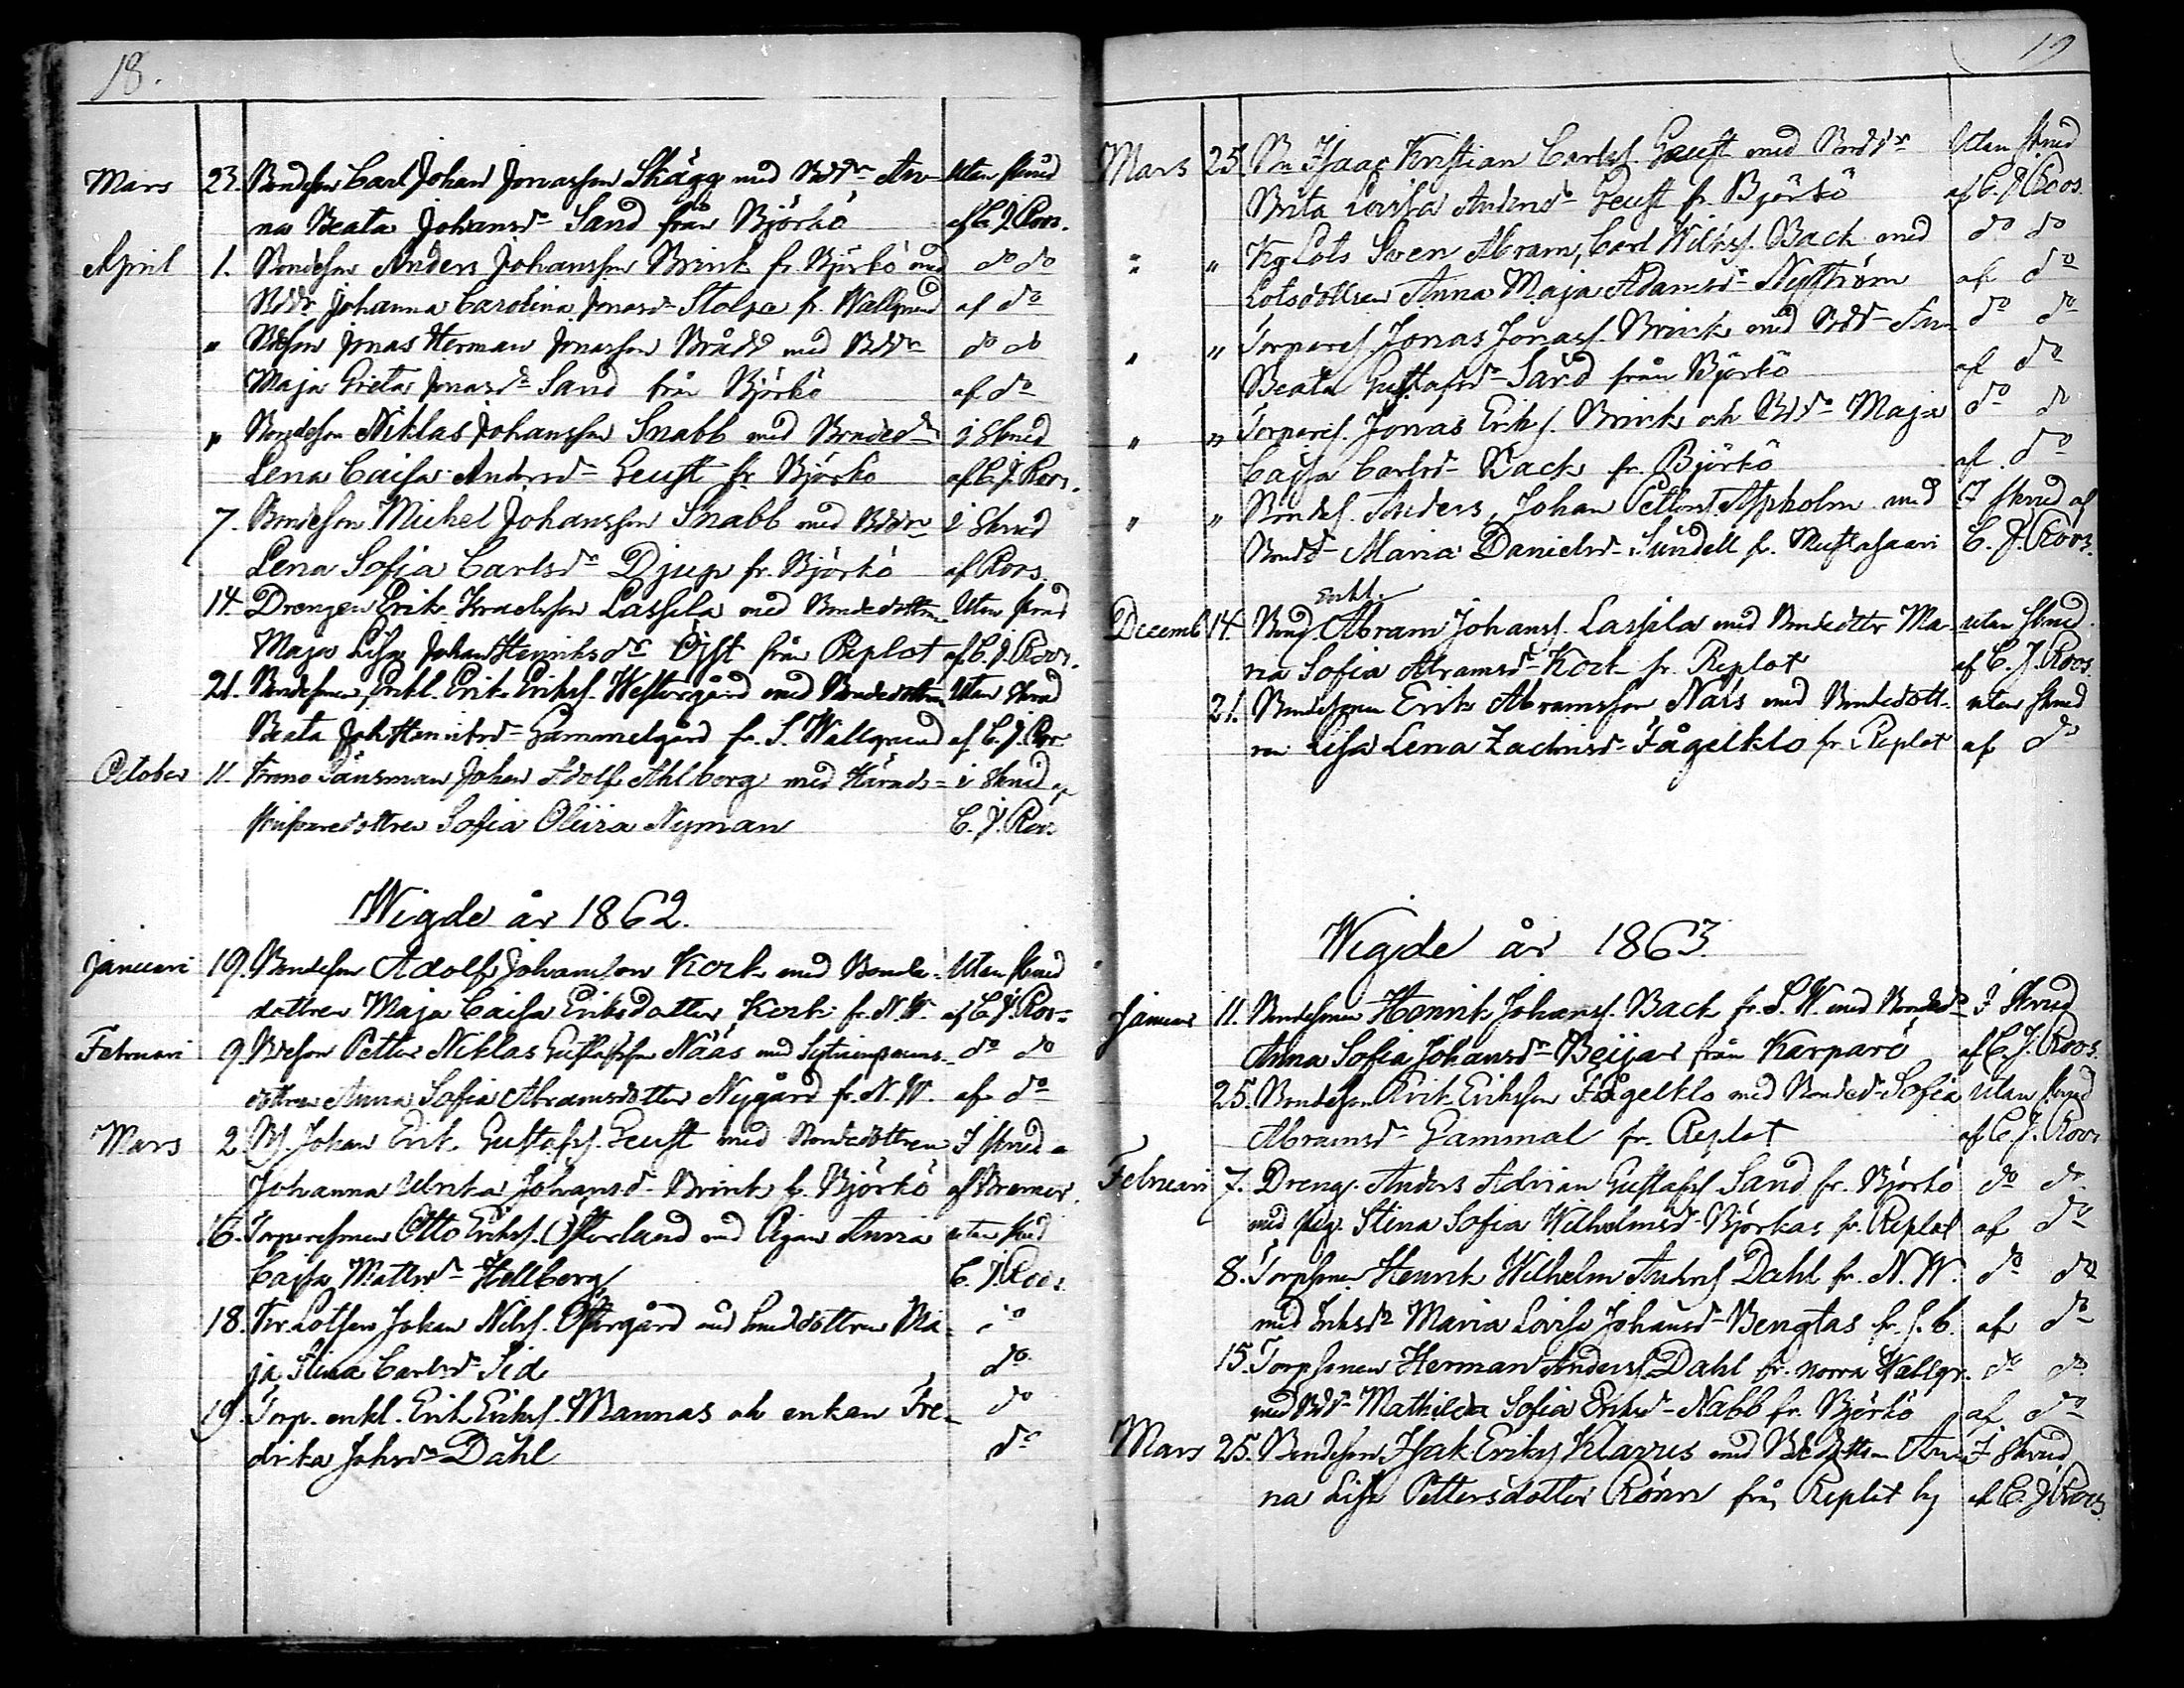 18.
Mars 23. Bondeson Carl Johan Jonasson Skägg med Bddr An- Utan skrud
na Beata Johansdr Sand från Björkö af C. J. Roos.
April 1. Bondeson Anders Johansson Brink fr. Björkö med do do
Bddr Johanna Carolina Jonasdr Stolpe fr. Wallgrund af do
" Bdeson Jonas Herman Jonasson Brådd med Bddr do do
Maja Greta Jonasdr Sand från Björkö af do
" Bondeson Niklas Johansson Snabb med Bondedr i skrud
Lena Caisa Andersdr Geust fr Björkö af C. J. Roos.
7. Bondeson Mickel Johansson Snabb med Bddr i skrud
Lena Sofia Carlsdr Djup fr. Björkö af Roos.
14. Drengen Erik Israelsson Lassila med Bondedottren Utan skrud
Maja Lisa Johan Henriksdr Öjst från Replot af C. J. Roos.
21. Bondesonen, Enkl. Erik Erikss. Westergård med Bondedottren Utan skrud
Beata Joh Henriksdr Gammelgård fr. S. Wallgrund af C. J. Roos
October 11. Krono Länsman Johan Adolf Ahlberg med Härads- i skrud af
skrifvaredottren Sofia Olivia Nyman C. J. Roos
Wigde år 1862.
Januari 19. Bondeson Adolf Johansson Kock med Bonde- Utan skrud
dottren Maja Caisa Eriksdotter Kock fr. N. W. af C. J. Roos
Februari 9. Bdeson Petter Niklas Gustafsson Näås med do do
dottren Anna Sofia Abramsdotter Nygård fr. N. W. af do
Mars 2. Bs. Johan Erik Gustafss. Geust med Bondedottren I skrud a
Johanna Ulrika Johansd. Brink fr. Björkö af Bremer.
16. Torparesonen Otto Erikss. Österlund med Pigan Anna utan skrud
Cajsa Mattsdr Hellberg C. J. Roos.
18. Kr. Lotsen Johan Nilss. Östergård med dottren Ma- do
ja Stina Carlsdr Sid do
19. Torp. enkl. Erik Erikss. Mannas och enkan Fre- do
drika Johsdr Dahl do
19
Mars 25. Bn Isaac Kristian Carlss. Geust med Bondedr Utan skrud
Brita Lovisa Andersdr Geust fr. Björkö af C. J. Roos.
" " Kg Lots Sven Abram, Carl Wilhss. Back med do do
Lotsdottren Anna Maja Adamsdr Nyström af do
" " Torpares. Jonas Jonass. Brink med Bddr An- do do
Beata Gustafsdr Sand från Björkö af do
" " Torpares. Jonas Eriks. Brink och Bddr Maja do do
Cajsa Carlsdr Back fr. Björkö af do
" " Bondes. Anders, Johan Petters Aspholm med I skrud af
Bondd- Maria Danielsdr Sundell fr. Mustasaari C. J. Roos.
Decemb 14. Bond enkl. Abram Johanss. Lassila med Bondedottr Ma- utan skrud
ria Sofia Abramsdr Kock fr. Replot af C. J. Roos.
21. Bondesonen Erik Abramsson Nars med Bondedott- utan skrud
ren Lisa Lena Zachrisdr Fågelklo fr. Replot af do
Wigde år 1863.
Januari 11. Bondesonen Henrik Johanss. Back fr. S. W. med Bondedr I skrud
Anna Sofia Johansdr Beijar från Karparö af C. J. Roos.
25. Bondeson Erik Eriksson Fågelklo med Bondedr Sofia Utan skrud
Abramsdr Gammal fr. Replot af C. J. Roos
Februari 7. Dreng. Anders Adrian Gustafss Sand fr. Björkö do do
med pig. Stina Sofia Wilhelmsdr Björkas fr. Replot af do
8. Torpsonen Henrik Wilhelm Anders Dahl fr. N. W. do do
med Maria Lovisa Johansdr Bengtas fr. af do
15. Torpsonen Herman Anderss. Dahl fr. norra Wallgr. do do
med Bddr Mathilda Sofia Eriksdr Nabb fr. Björkö af do
Mars 25. Bondeson Isak Erikss Klavus med Bdedottren An- I skrud
na Lisa Pettersdotter Rönn från Replot by af C. J. Roos.